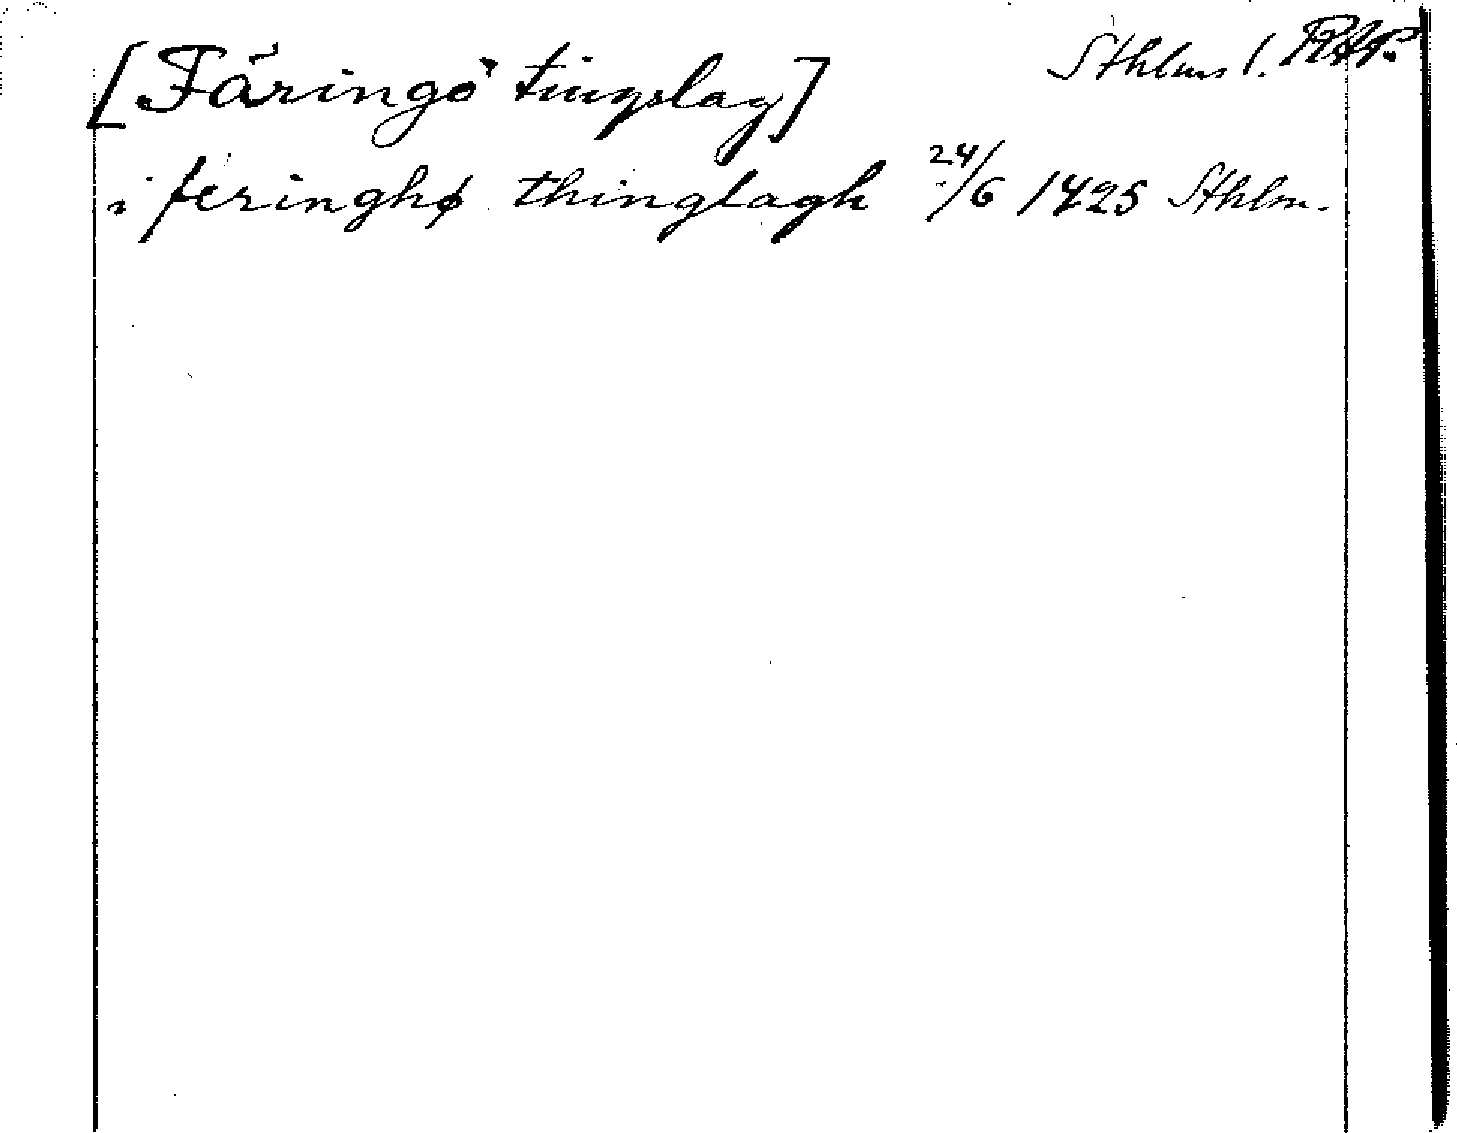 [Färingö tingslag] Sthlms l. RAP.
i feringhø thinglagh 24/6 1425 Sthlm.